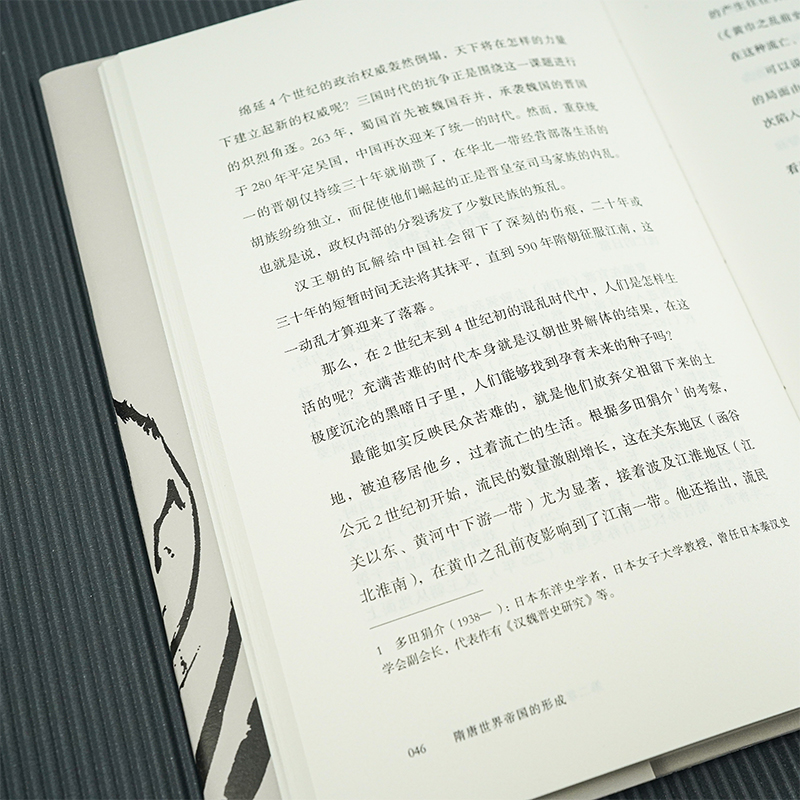 绵延 4 个世纪的政治权威轰然倒塌，天下将在怎样的力量
下建立起新的权威呢？三国时代的抗争正是围绕这一课题进行
的炽烈角逐。263 年，蜀国首先被魏国吞并，承袭魏国的晋国
于 280 年平定吴国，中国再次迎来了统一的时代。然而，重获统
一的晋朝仅持续三十年就崩溃了，在华北一带经营部落生活的
胡族纷纷独立，而促使他们崛起的正是晋皇室司马家族的内乱。
也就是说，政权内部的分裂诱发了少数民族的叛乱。
汉王朝的瓦解给中国社会留下了深刻的伤痕，二十年或
三十年的短暂时间无法将其抹平，直到 590 年隋朝征服江南，这
一动乱才算迎来了落幕。
那么，在 2 世纪末到 4 世纪初的混乱时代中，人们是怎样生
活的呢？充满苦难的时代本身就是汉朝世界解体的结果，在这
极度沉沦的黑暗日子里，人们能够找到孕育未来的种子吗？
最能如实反映民众苦难的，就是他们放弃父祖留下来的土
地，被迫移居他乡，过着流亡的生活。根据多田狷介1的考察，
公元 2 世纪初开始，流民的数量激剧增长，这在关东地区（函谷
关以东、黄河中下游一带）尤为显著，接着波及江淮地区（江
北淮南），在黄巾之乱前夜影响到了江南一带。他还指出，流民
1 多田狷介（1938— ）：日本东洋史学者，日本女子大学教授，曾任日本秦汉史
学会副会长，代表作有《汉魏晋史研究》等。
046 隋唐世界帝国的形成
的产生往往
（《黄巾之乱前史
在这种流亡、
可以说
的局面由
次陷入
看